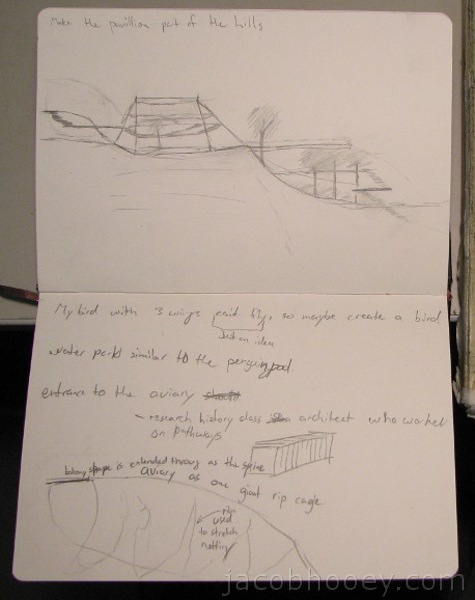 Make the pavillion part of the hills
My bird with 3 wings cant fly, so maybe create a bird
Just an idea
water park similar to the penguin pool
entrance to the aviary
- research history class architect who worked
on pathways
shape is extended throug as the spine
aviary as one giant rip cage
ribs
used
to stretch
netting
jacobhooey.com